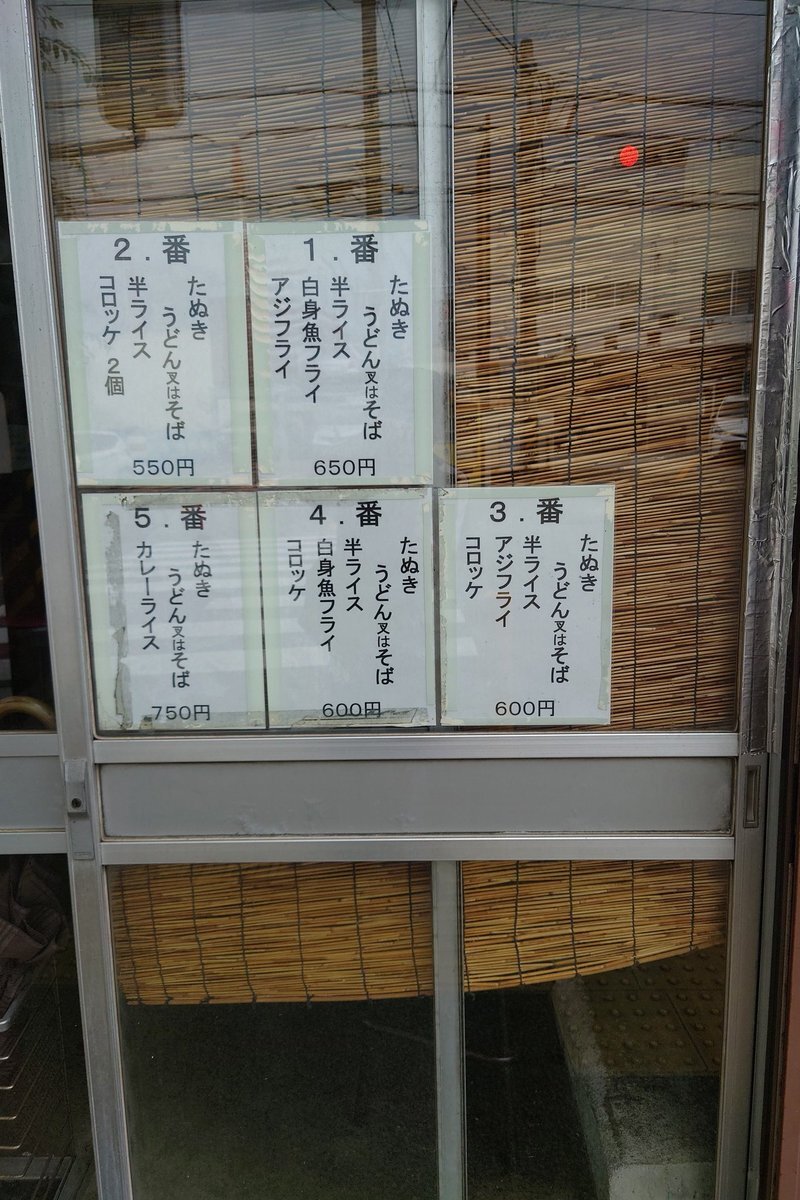 1．番
たぬき
うどん又はそば
半ライス
白身魚フライ
アジフライ
650円
2．番
たぬき
うどん又はそば
半ライス
コロッケ 2個
550円
3．番
たぬき
うどん又はそば
半ライス
アジフライ
コロッケ
600円
4．番
たぬき
うどん又はそば
半ライス
白身魚フライ
コロッケ
600円
5．番
たぬき
うどん又はそば
カレーライス
750円